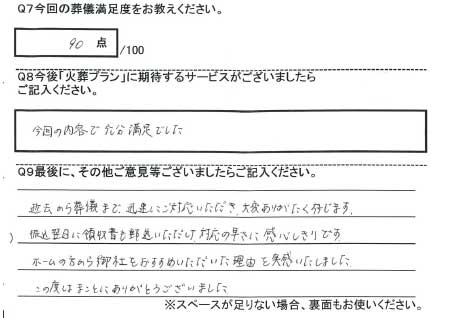 Q7今回の葬儀満足度をお教えください。
90 点 /100
Q8今後「火葬プラン」に期待するサービスがございましたら
ご記入ください。
今回の内容で充分満足でした
Q9最後に、その他ご意見等ございましたらご記入ください。
逝去から葬儀まで迅速にご対応いただき、大変ありがたく存じます。
振込翌日に領収書も郵送いただけ対応の早さに感心しきりです。
ホームの方から御社をおすすめいただいた理由を実感いたしました。
この度はまことにありがとうございました
※スペースが足りない場合、裏面もお使いください。